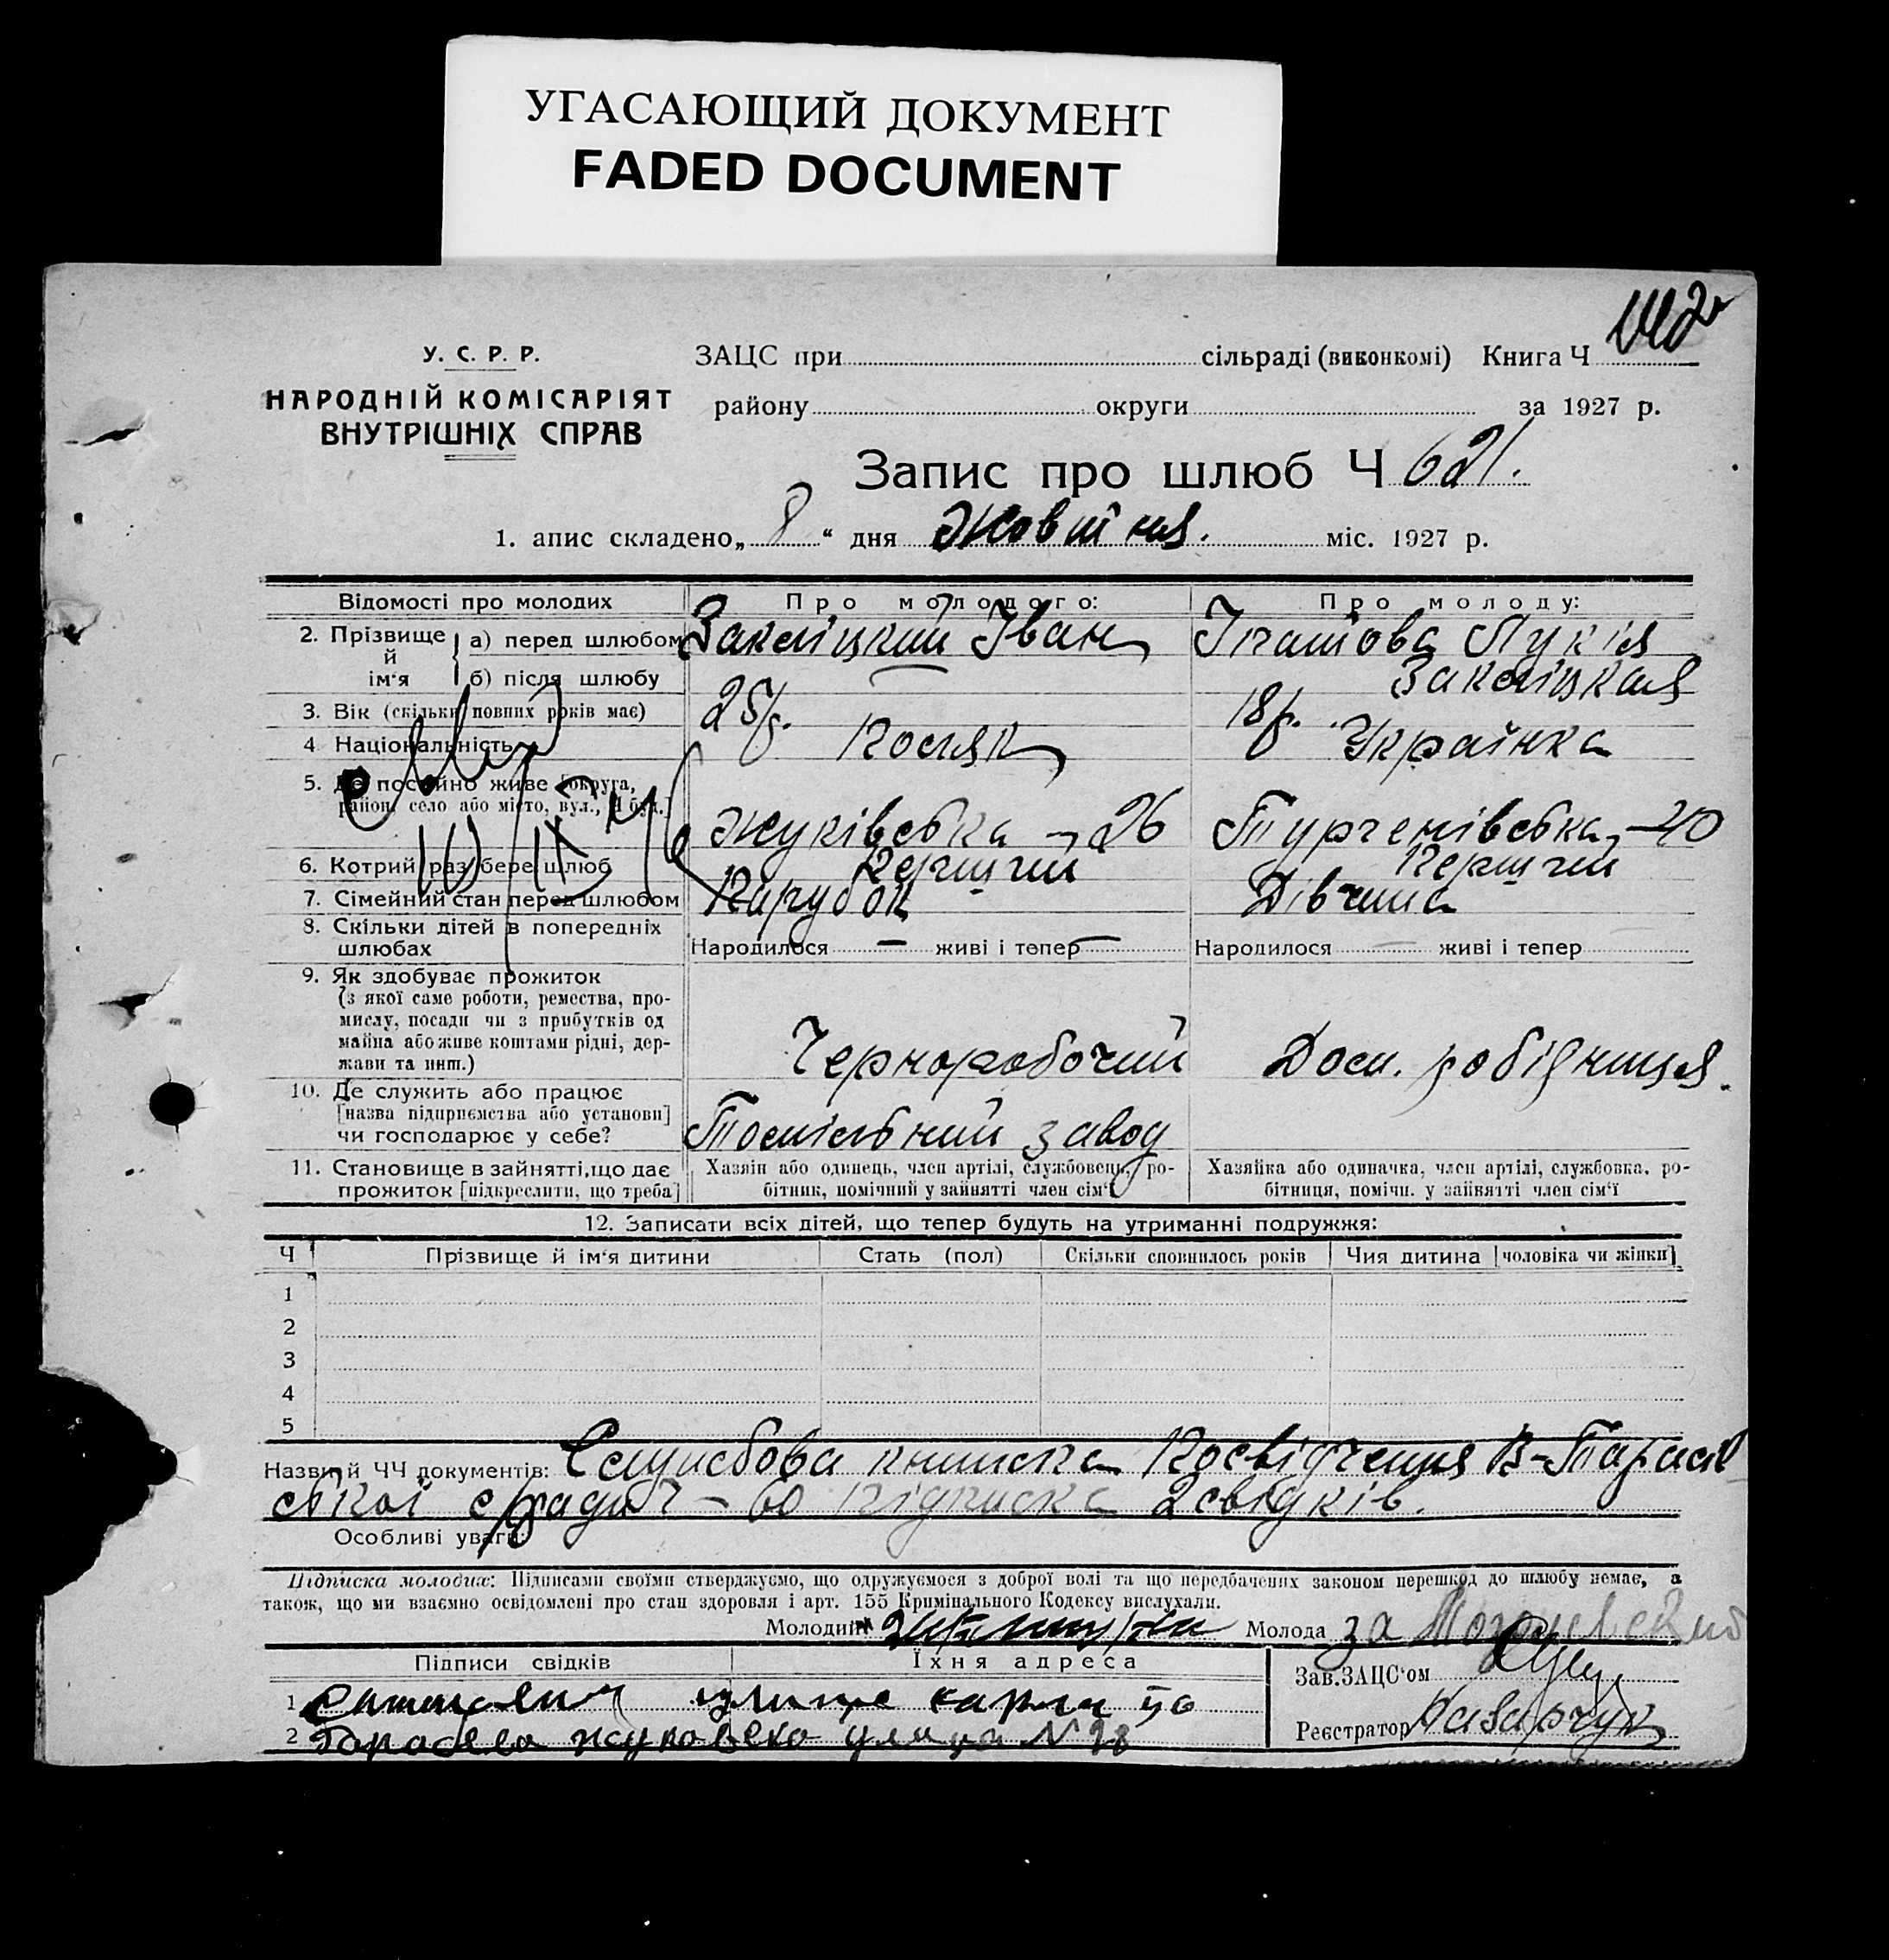 УГАСАЮЩИЙ ДОКУМЕНТ
FADED DOCUMENT
У. С. Р. Р.
НАРОДНІЙ КОМІСАРІЯТ
ВНУТРІШНІХ СПРАВ
ЗАЦС при сільраді (виконкомі) Книга Ч
району округи за 1927 р.
Запис про шлюб Ч 621.
1. апис складено „ 8 “ дня Жовтня. міс. 1927 р.
Відомості про молодих Про молодого: Про молоду:
2. Прізвище й ім‘я а) перед шлюбом Закліцкий Іван Ігнатова Лукія
б) після шлюбу Закліцкая
3. Вік (скільки повних років має) 25р. 18р.
4 Національність Поляк Українка
5. Де постійно живе [округа,
район, село або місто, вул., Ч буд.] Жуківська – 26 Тургенівська, – 40
6. Котрий раз бере шлюб Перший Перший
7. Сімейний стан перед шлюбом Парубок Дівчина
8. Скільки дітей в попередніх
шлюбах Народилося – живі і тепер – Народилося – живі і тепер
9. Як здобуває прожиток
(з якої саме роботи, ремества, про-
мислу, посади чи з прибутків од
майна або живе коштами рідні, дер-
жави та инш.) Чернорабочий Дом. робідниця.
10. Де служить або працює
[назва підприємства або установи]
чи господарює у себе? завод
11. Становище в зайнятті, що дає
прожиток [підкреслити, що треба]
Хазяїн або одинець, член артілі, службовець, ро-
бітник, помічний у зайнятті член сім‘ї
Хазяйка або одиначка, член артілі, службовка, ро-
бітниця, помічн. у зайнятті член сім‘ї
12. Записати всіх дітей, що тепер будуть на утриманні подружжя:
Ч Прізвище й ім‘я дитини Стать (пол) Скільки сповнилось років Чия дитина [чоловіка чи жінки]
1
2
3
4
5
Назви й ЧЧ документів: Службова книжка Посвідчення В-Тарасів
ської с/ради Ч – 60 підписка 2 свідків.
Особливі уваги:
Підписка молодих: Підписами своїми стверджуємо, що одружуємося з доброї волі та що передбачених законом перешкод до шлюбу немає, а
також, що ми взаємно освідомлені про стан здоровля і арт. 155 Кримінального Кодексу вислухали.
Молодий Молода за
Підписи свідків Їхня адреса
Зав. ЗАЦС‘ом
1 улица
2 улица N 28
Реєстратор